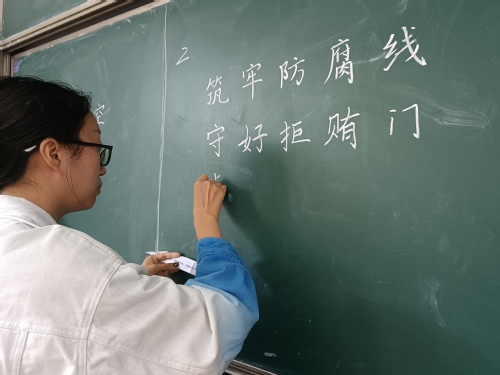 2
筑牢防腐线
守好拒贿门